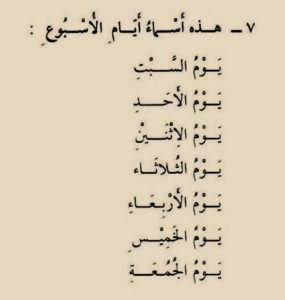 ٧ - هذه أَسْمَاءُ أَيَّامِ الأُسْبُوعِ :
يَوْمُ السَّبْتِ
يَوْمُ الأَحَدِ
يَوْمُ الاِثْنَيْنِ
يَوْمُ الثُّلاثَاء
يَوْمُ الأَرْبِعَاءِ
يَوْمُ الخَمِيْسِ
يَوْمُ الجُمُعَةِ